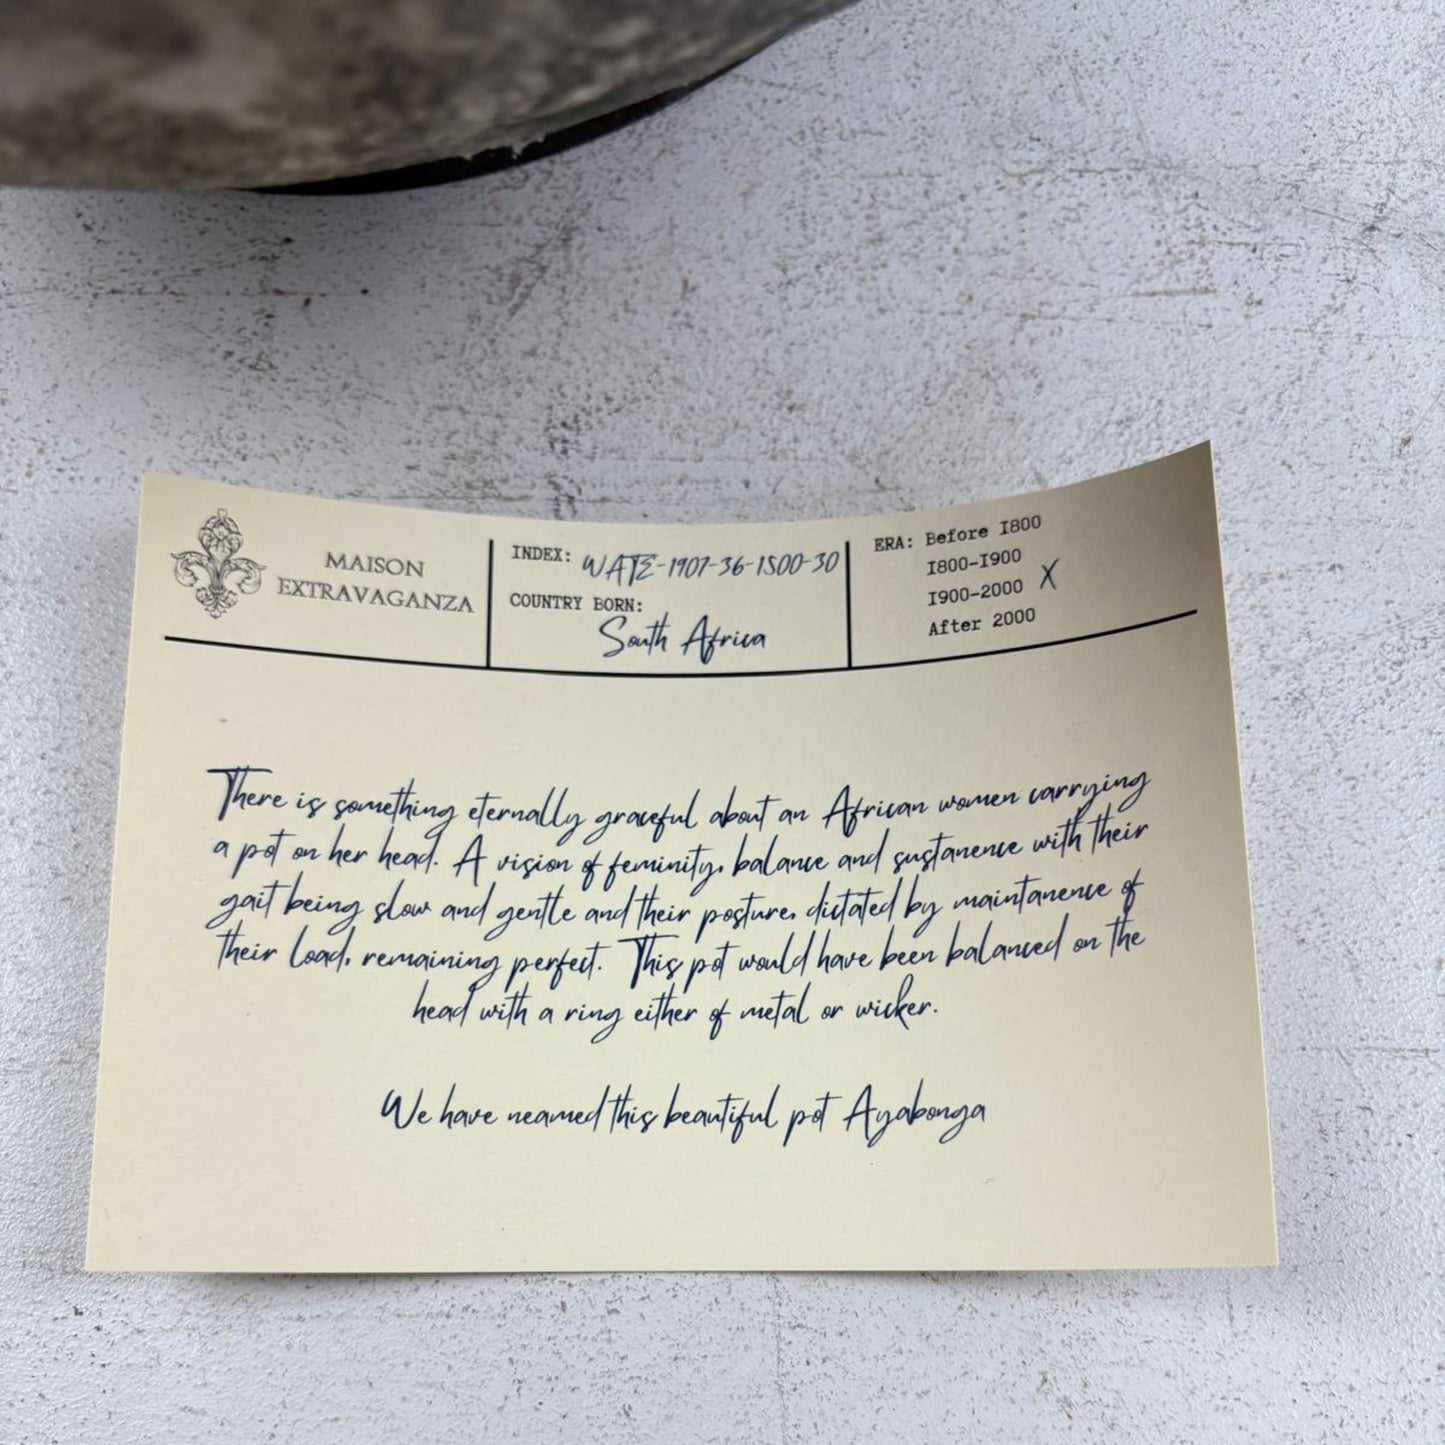 MAISON
EXTRAVAGANZA
INDEX: WATE-1907-36-1500-30
COUNTRY BORN:
South Africa
ERA: Before 1800
1800-1900
1900-2000 X
After 2000
There is something eternally graceful about an African women carrying
a pot on her head. A vision of feminity, balance and sustanence with their
gait being slow and gentle and their posture, dictated by maintanence of
their load, remaining perfect. This pot would have been balanced on the
head with a ring either of metal or wicker.
We have neamed this beautiful pot Ayabonga